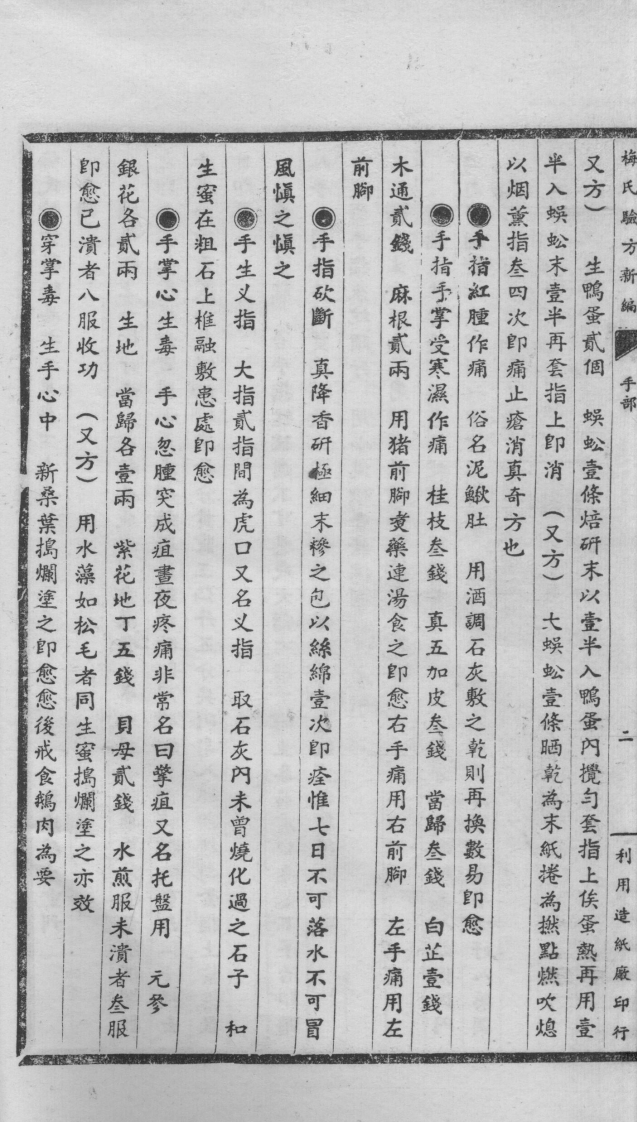 梅氏驗方新編 手部 二 利用造紙廠印行
又方） 生鴨蛋貳個 蜈蚣壹條焙研末以壹半入鴨蛋內攪勻套指上俟蛋熱再用壹
半入蜈蚣末壹半再套指上卽消 （又方） 大蜈蚣壹條晒乾為末紙捲為撚點燃吹熄
以烟薰指叁四次卽痛止瘡消真奇方也
◉手指紅腫作痛 俗名泥鰍肚 用酒調石灰敷之乾則再換數易卽愈
◉手指手掌受寒濕作痛 桂枝叁錢 真五加皮叁錢 當歸叁錢 白芷壹錢
木通貳錢 麻根貳兩 用猪前腳煑藥連湯食之卽愈右手痛用右前腳 左手痛用左
前腳
◉手指砍斷 真降香研極細末糝之包以絲綿壹次卽痊惟七日不可落水不可冒
風愼之愼之
◉手生义指 大指貳指間為虎口又名义指 取石灰內未曾燒化過之石子 和
生蜜在粗石上椎融敷患處卽愈
◉手掌心生毒 手心忽腫突成疽晝夜疼痛非常名曰擎疽又名托盤用 元參
銀花各貳兩 生地 當歸各壹兩 紫花地丁五錢 貝母貳錢 水煎服未潰者叁服
卽愈已潰者八服收功 （又方） 用水藻如松毛者同生蜜搗爛塗之亦效
◉穿掌毒 生手心中 新桑葉搗爛塗之卽愈愈後戒食鵝肉為要